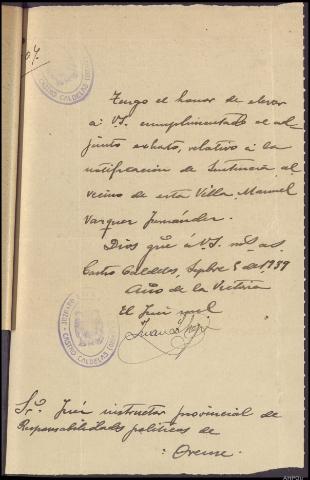 Tengo el honor de elevar
a V.S. cumplimentado el ad
junto exhorto, relativo a la
notificación de Sentencia al
vecino de esta Villa, Manuel
Vazquez Fernández.
Dios gue á V.S. ms as.
Castro Caldelas, Sepbre 5 de 1939
Año de la Victoria
El Juez mpal
Sr. Juez instructor provincial de
Responsabilidades políticas de
Orense.
CASTRO CALDELAS
JUZGADO
CASTRO CALDELAS